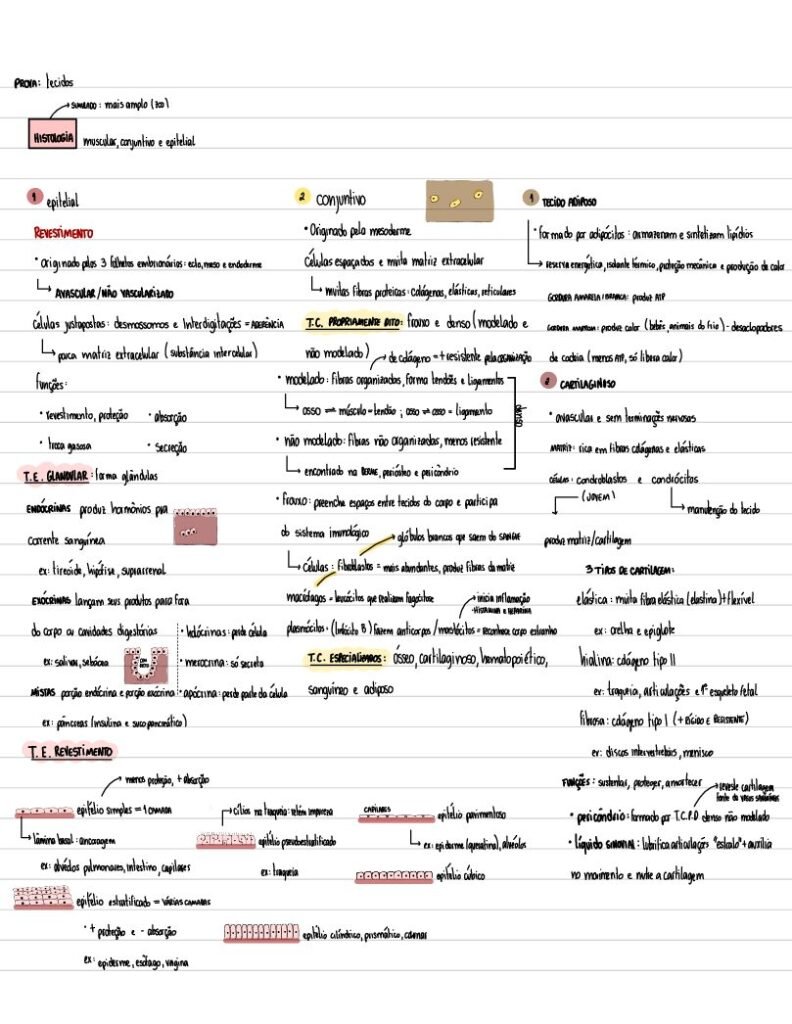 PROVA: tecidos
SIMULADO: mais amplo (3CO)
HISTOLOGIA
muscular, conjuntivo e epitelial
1 epitelial
REVESTIMENTO
• Originado pelos 3 folhetos embrionários: ecto, meso e endoderme
AVASCULAR/NÃO VASCULARIZADO
Células justapostas: desmossomos e Interdigitações = ADERÊNCIA
pouca matriz extracelular (substância intercelular)
funções:
• revestimento, proteção • absorção
• troca gasosa • Secreção
T.E. GLANDULAR: forma glândulas
ENDÓCRINAS produz hormônios pra
corrente sanguínea
ex: tireóide, hipófise, suprarrenal
EXÓCRINAS lançam seus produtos para fora
do corpo ou cavidades digestórias
ex: salivar, sebácea
• holócrinas: perde célula
• merócrina: só secreta
• apócrina: perde parte da célula
MISTAS porção endócrina e porção exócrina
ex: pâncreas (insulina e suco pancreático)
T.E. REVESTIMENTO
menos proteção, + absorção
epitélio simples = 1 CAMADA
lâmina basal: ancoragem
ex: alvéolos pulmonares, intestino, capilares
epitélio estratificado = VÁRIAS CAMADAS
• + proteção e - absorção
ex: epiderme, esôfago, vagina
cílios na traqueia: retém impureza
epitélio pseudoestratificado
ex: traqueia
epitélio cilíndrico, prismático, colunar
CAPILARES
epitélio pavimentoso
ex: epiderme (queratina), alvéolos
epitélio cúbico
2 conjuntivo
• Originado pela mesoderme
Células espaçadas e muita matriz extracelular
muitas fibras proteicas: colágenas, elásticas, reticulares
T.C. PROPRIAMENTE DITO: frouxo e denso (modelado e
não modelado)
de colágeno = + resistente pela ORGANIZAÇÃO
• modelado: fibras organizadas, forma tendões e ligamentos
osso ⇌ músculo = tendão ; osso ⇌ osso = ligamento
• não modelado: fibras não organizadas, menos resistente
encontrado na DERME, periósteo e pericôndrio
DENSO
• frouxo: preenche espaços entre tecidos do corpo e participa
do sistema imunológico
glóbulos brancos que saem do SANGUE
Células: fibroblastos = mais abundantes, produz fibras da matriz
macrófagos = leucócitos que realizam fagocitose
inicia inflamação
-HISTAMINA E HEPARINA
plasmócitos: (linfócito B) fazem anticorpos / mastócitos = reconhece corpo estranho
T.C. ESPECIALIZADOS: ósseo, cartilaginoso, hematopoiético,
sanguíneo e adiposo
1 TECIDO ADIPOSO
• formado por adipócitos: armazenam e sintetizam lipídios
reserva energética, isolante térmico, proteção mecânica e produção de calor
GORDURA AMARELA/BRANCA: produz ATP
GORDURA MARROM: produz calor (bebês, animais do frio) - desacopladores
de cadeia (menos ATP, só libera calor)
2 CARTILAGINOSO
• avascular e sem terminações nervosas
MATRIZ: rica em fibras colágenas e elásticas
CÉLULAS: condroblastos e condrócitos
(JOVEM)
manutenção do tecido
produz matriz/cartilagem
3 TIPOS DE CARTILAGEM:
elástica: muita fibra elástica (elastina) + flexível
ex: orelha e epiglote
hialina: colágeno tipo II
ex: traqueia, articulações e 1º esqueleto fetal
fibrosa: colágeno tipo I (+ RÍGIDO E RESISTENTE)
ex: discos intervertebrais, menisco
FUNÇÕES: sustentar, proteger, amortecer
reveste cartilagem
fonte de VASOS SANGUÍNEOS
• pericôndrio: formado por T.C.P.D denso não modelado
• líquido SINOVIAL: lubrifica articulações "estralo" + auxilia
no movimento e nutre a cartilagem